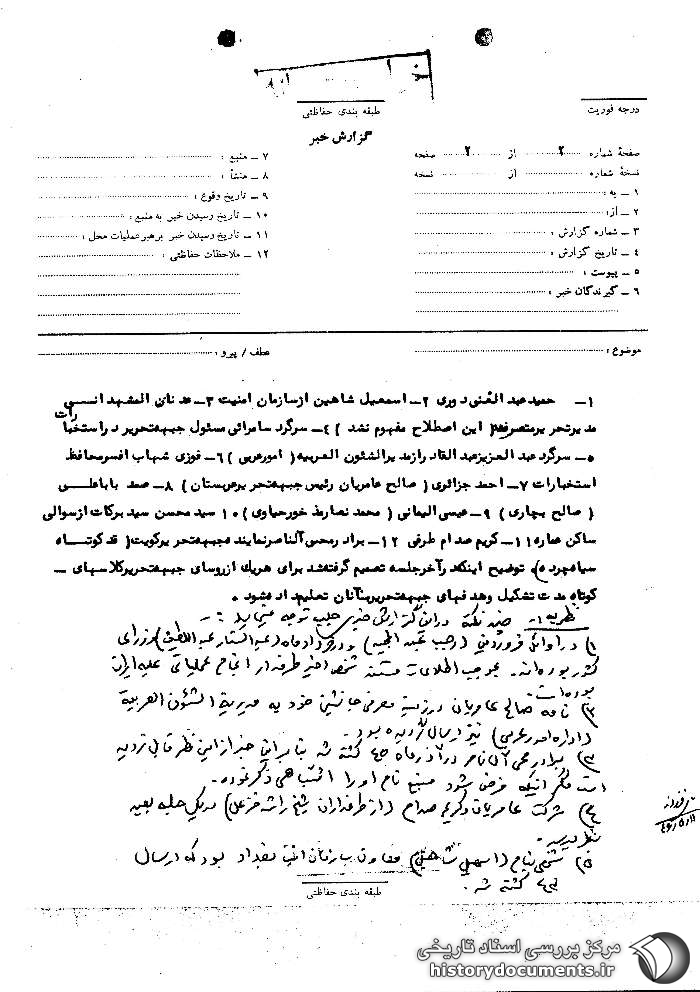 درجه فوریت
طبقه بندی حفاظتی
گزارش خبر
صفحهٔ شماره ۲ از ۲ صفحه
نسخهٔ شماره از نسخه
۱ ـ به :
۲ ـ از :
۳ ـ شماره گزارش :
۴ ـ تاریخ گزارش :
۵ ـ پیوست :
۶ ـ گیرندگان خبر :
۷ ـ منبع :
۸ ـ منشأ :
۹ ـ تاریخ وقوع :
۱۰ ـ تاریخ رسیدن خبر به منبع :
۱۱ ـ تاریخ رسیدن خبر برهبر عملیات محل :
۱۲ ـ ملاحظات حفاظتی :
موضوع :
عطف / پیرو :
۱ـ حمید عبد الغنی دوری ۲ـ اسمعیل شاهین ازسازمان امنیت ۳ـ عدنان المشهدانی
مدیرتحریرمتصرفة( این اصطلاح مفهوم نشد ) ۴ـ سرگرد سامرائی مسئول جبههتحریر در استخبارات
۵ـ سرگرد عبد العزیزعبد القادرازمدیرالشئون العربیه( امورعربی ) ۶ـ فوزی شهاب افسرمحافظ
استخبارات ۷ـ احمد جزائری( صالح عامریان رئیس جبههتحریرعربستان ) ۸ـ صمد باباعلی
( صالح بچاری ) ۹ـ عیسی الیمانی ( محمد نصارمذخورحیاوی ) ۱۰ سید محسن سید برکات ازسوالی
ساکن عماره ۱۱ـ کریم صدام طرفی ۱۲ـ برادر محیی آلناصرنماینده جبههتحریرکویت( قدکوتاه
سیاهچرده ) توضیح اینکه درآخرجلسه تصمیم گرفته شد برای هریك ازروسای جبههتحریرکلاسهای ـ
کوتاه مدت تشکیل وهدفهای جبههتحریربآنان تعلیم داده شود ۰
نظریه ـ چند نکته در این گزارش خبری جلب توجه مینماید :ـ
۱) در اوائل فروردین (رجب عبدالمجید) و در خردادماه (عبدالستار عبداللطیف) وزرای
کشور بوده‌اند. بموجب اطلاعات شخص اخیر طرفدار انجام عملیاتی علیه ایران
بوده است.
۲) نامه صالح عامریان در زمینه معرفی جانشین خود به مدیریة الشئون العربیة
(اداره امور عربی) نیز ارسال گردیده بود.
۳) برادر محیی آل ناصر در آذر ماه ۴۵ کشته شد بنابراین خبر از این نظر قابل تردید
است مگر اینکه فرض شود منبع نام او را اشتباهی ذکر نموده.
۴) شرکت عامریان و کریم صدام (از طرفداران شیخ راشد خزعل) در یک جلسه بعید
بنظر میرسد.
۵) شخصی بنام (اسمعیل شاهین) معاون سازمان امنیت بغداد بود که ارسال
۴۵ کشته شد.
طبقه بندی حفاظتی
مرکز بررسی اسناد تاریخی
historydocuments.ir